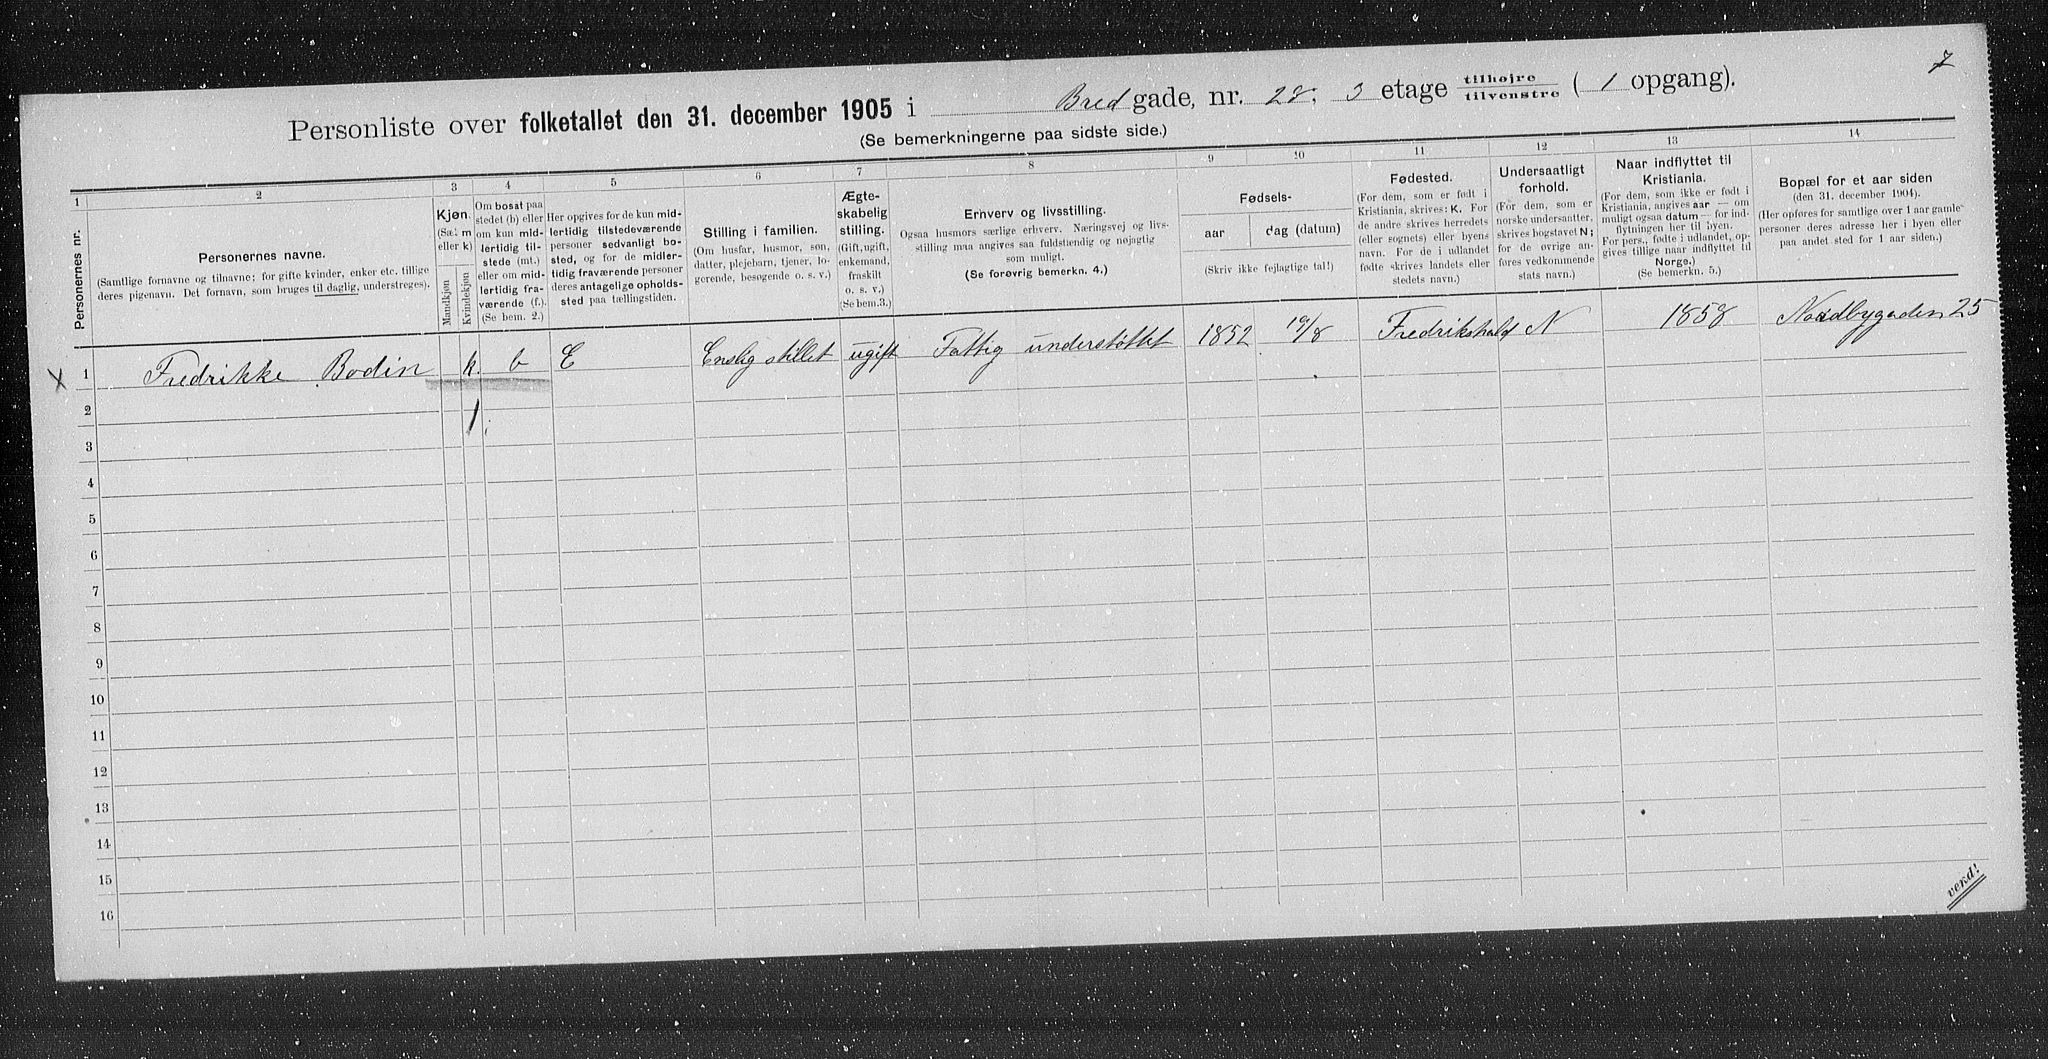 7
Personliste over folketallet den 31. december 1905 i Bredgade, nr. 28, 3 etage tilhøjre tilvenstre ( 1 opgang).
(Se bemerkningerne paa sidste side.)
1 2 3 4 5 6 7 8 9 10 11 12 13 14
Personernes nr.
Personernes navne.
(Samtlige fornavne og tilnavne; for gifte kvinder, enker etc. tillige
deres pigenavn. Det fornavn, som bruges til daglig, understreges).
Kjøn.
(Sæt m
eller k)
Mandkjøn
Kvindekjøn
Om bosat paa
stedet (b) eller
om kun mid-
lertidig til-
stede (mt.)
eller om mid-
lertidig fra-
værende (f.).
(Se bem. 2.)
Her opgives for de kun mid-
lertidig tilstedeværende
personer sedvanligt bo-
sted, og for de midler-
tidig fraværende personer
deres antagelige opholds-
sted paa tællingstiden.
Stilling i familien.
(Om husfar, husmor, søn,
datter, plejebarn, tjener, lo-
gerende, besøgende o. s. v.)
Ægte-
skabelig
stilling.
(Gift, ugift,
enkemand,
fraskilt
o. s. v.)
(Se bem.3.)
Erhverv og livsstilling.
Ogsaa husmors særlige erhverv. Næringsvej og livs-
stilling maa angives saa fuldstændig og nøjagtig
som muligt.
(Se forøvrig bemerkn. 4.)
Fødsels-
aar
dag (datum)
(Skriv ikke fejlagtige tal!)
Fødested.
(For dem, som er født i
Kristiania, skrives: K. For
de andre skrives herredets
(eller sognets) eller byens
navn. For de i udlandet
fødte skrives landets eller
stedets navn.)
Undersaatligt
forhold.
(For dem, som er
norske undersaatter,
skrives bogstavet N;
for de øvrige an-
føres vedkommende
stats navn.)
Naar indflyttet til
Kristiania.
(For dem, som ikke er født i
Kristiania, angives aar — om
muligt ogsaa datum — for ind-
flytningen her til byen.
For pers., fødte i udlandet, op-
gives tillige naar indflyttet til
Norge.)
(Se bemerkn. 5.)
Bopæl for et aar siden
(den 31. december 1904).
(Her opføres for samtlige over 1 aar gamle
personer deres adresse her i byen eller
paa andet sted for 1 aar siden.)
X 1 Fredrikke Bodin k. b E Enslig stillet ugift Fattig understøttet 1852 19/8 Fredrikshald N 1858 Nordbygaden 25
2 1
3
4
5
6
7
8
9
10
11
12
13
14
15
16
vend!